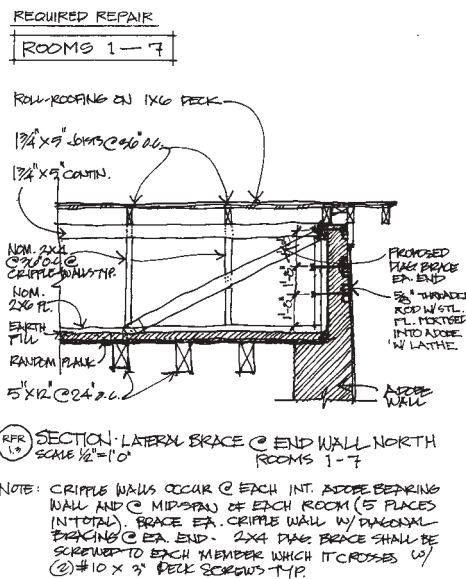 REQUIRED REPAIR
ROOMS 1-7
ROLL-ROOFING ON 1X6 DECK
1 3/4" X 5" JOISTS @ 36" O.C.
1 3/4" X 5" CONTIN.
NOM. 2X4
@ 36" O.C. @
CRIPPLE WALLS TYP.
NOM.
2X6 PL.
EARTH
FILL
RANDOM PLANK
5"X12" @ 24" O.C.
1'-0"
1'-8"
PROPOSED
DIAG. BRACE
EA. END
5/8" THREADED
ROD W/ STL.
PL. MORTISED
INTO ADOBE
W/ LATHE.
ADOBE
WALL
RFR
1.3
SECTION · LATERAL BRACE @ END WALL NORTH
SCALE 1/2"=1'0"
ROOMS 1-7
NOTE: CRIPPLE WALLS OCCUR @ EACH INT. ADOBE BEARING
WALL AND @ MIDSPAN OF EACH ROOM (5 PLACES
IN TOTAL). BRACE EA. CRIPPLE WALL W/ DIAGONAL
BRACING @ EA. END. 2X4 DIAG. BRACE SHALL BE
SCREWED TO EACH MEMBER WHICH IT CROSSES W/
(2) #10 X 3" DECK SCREWS TYP.